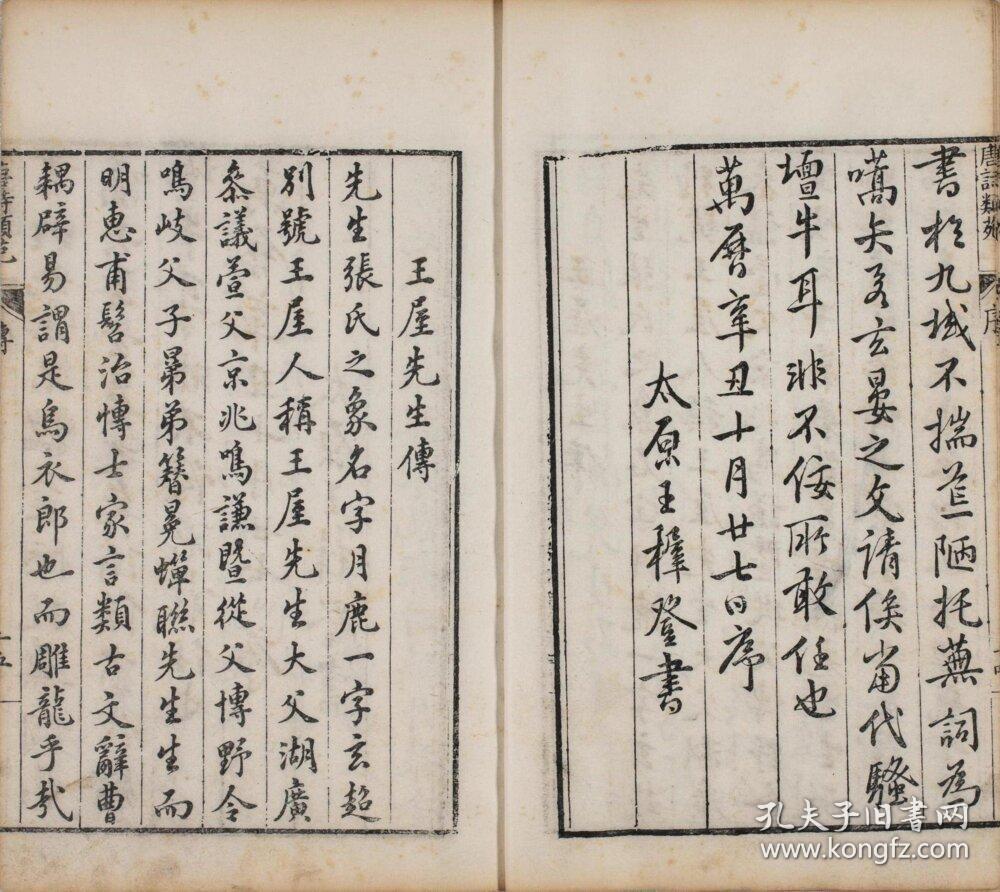 唐詩類苑 序
書於九域不揣菲陋托蕪詞為
嚆矢若玄晏之文請俟當代騷
壇牛耳非不佞所敢任也
萬曆辛丑十月廿七日序
太原王穉登書
王屋先生傳
先生張氏之象名字月鹿一字玄超
別號王屋人稱王屋先生大父湖廣
叅議萱父京兆鳴謙暨從父博野令
鳴岐父子㬪弟簪冕蟬聯先生生而
明惠甫髫治博士家言類古文辭曹
耦辟易謂是烏衣郎也而雕龍乎㢤
唐詩類苑 傳 十五
孔夫子旧书网
www.kongfz.com